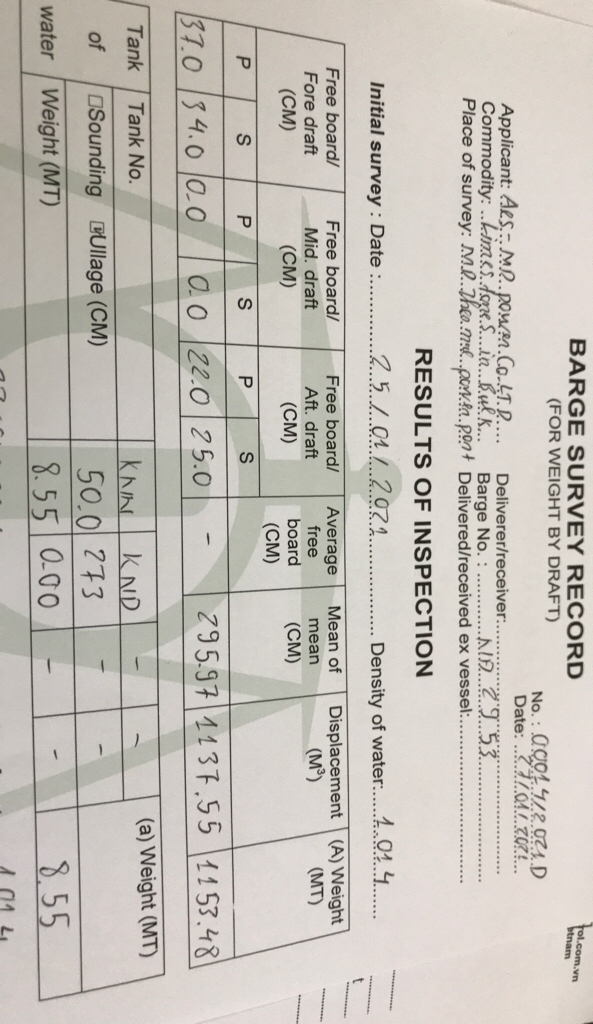 rol.com.vn
etnam
BARGE SURVEY RECORD
(FOR WEIGHT BY DRAFT)
No.: 00014/2021.D
Date: 27/01/2021
Applicant: AES - M.D. power Co.LTD
Deliverer/receiver:
Commodity: Limestones in Bulk
Barge No.: ND 2953
Place of survey: M.D. power
Delivered/received ex vessel:
RESULTS OF INSPECTION
Initial survey : Date : 25/01/2021 Density of water: 1.014
Free board/ Fore draft (CM) Free board/ Mid. draft (CM) Free board/ Aft. draft (CM) Average free board (CM) Mean of mean (CM) Displacement (M³) (A) Weight (MT)
P S P S P S
37.0 34.0 0.0 0.0 22.0 25.0 - 295.97 1137.55 1153.48
Tank of water
Tank No. KNN KND - - (a) Weight (MT)
Sounding Ullage (CM) 50.0 273 - -
Weight (MT) 8.55 0.00 - - 8.55